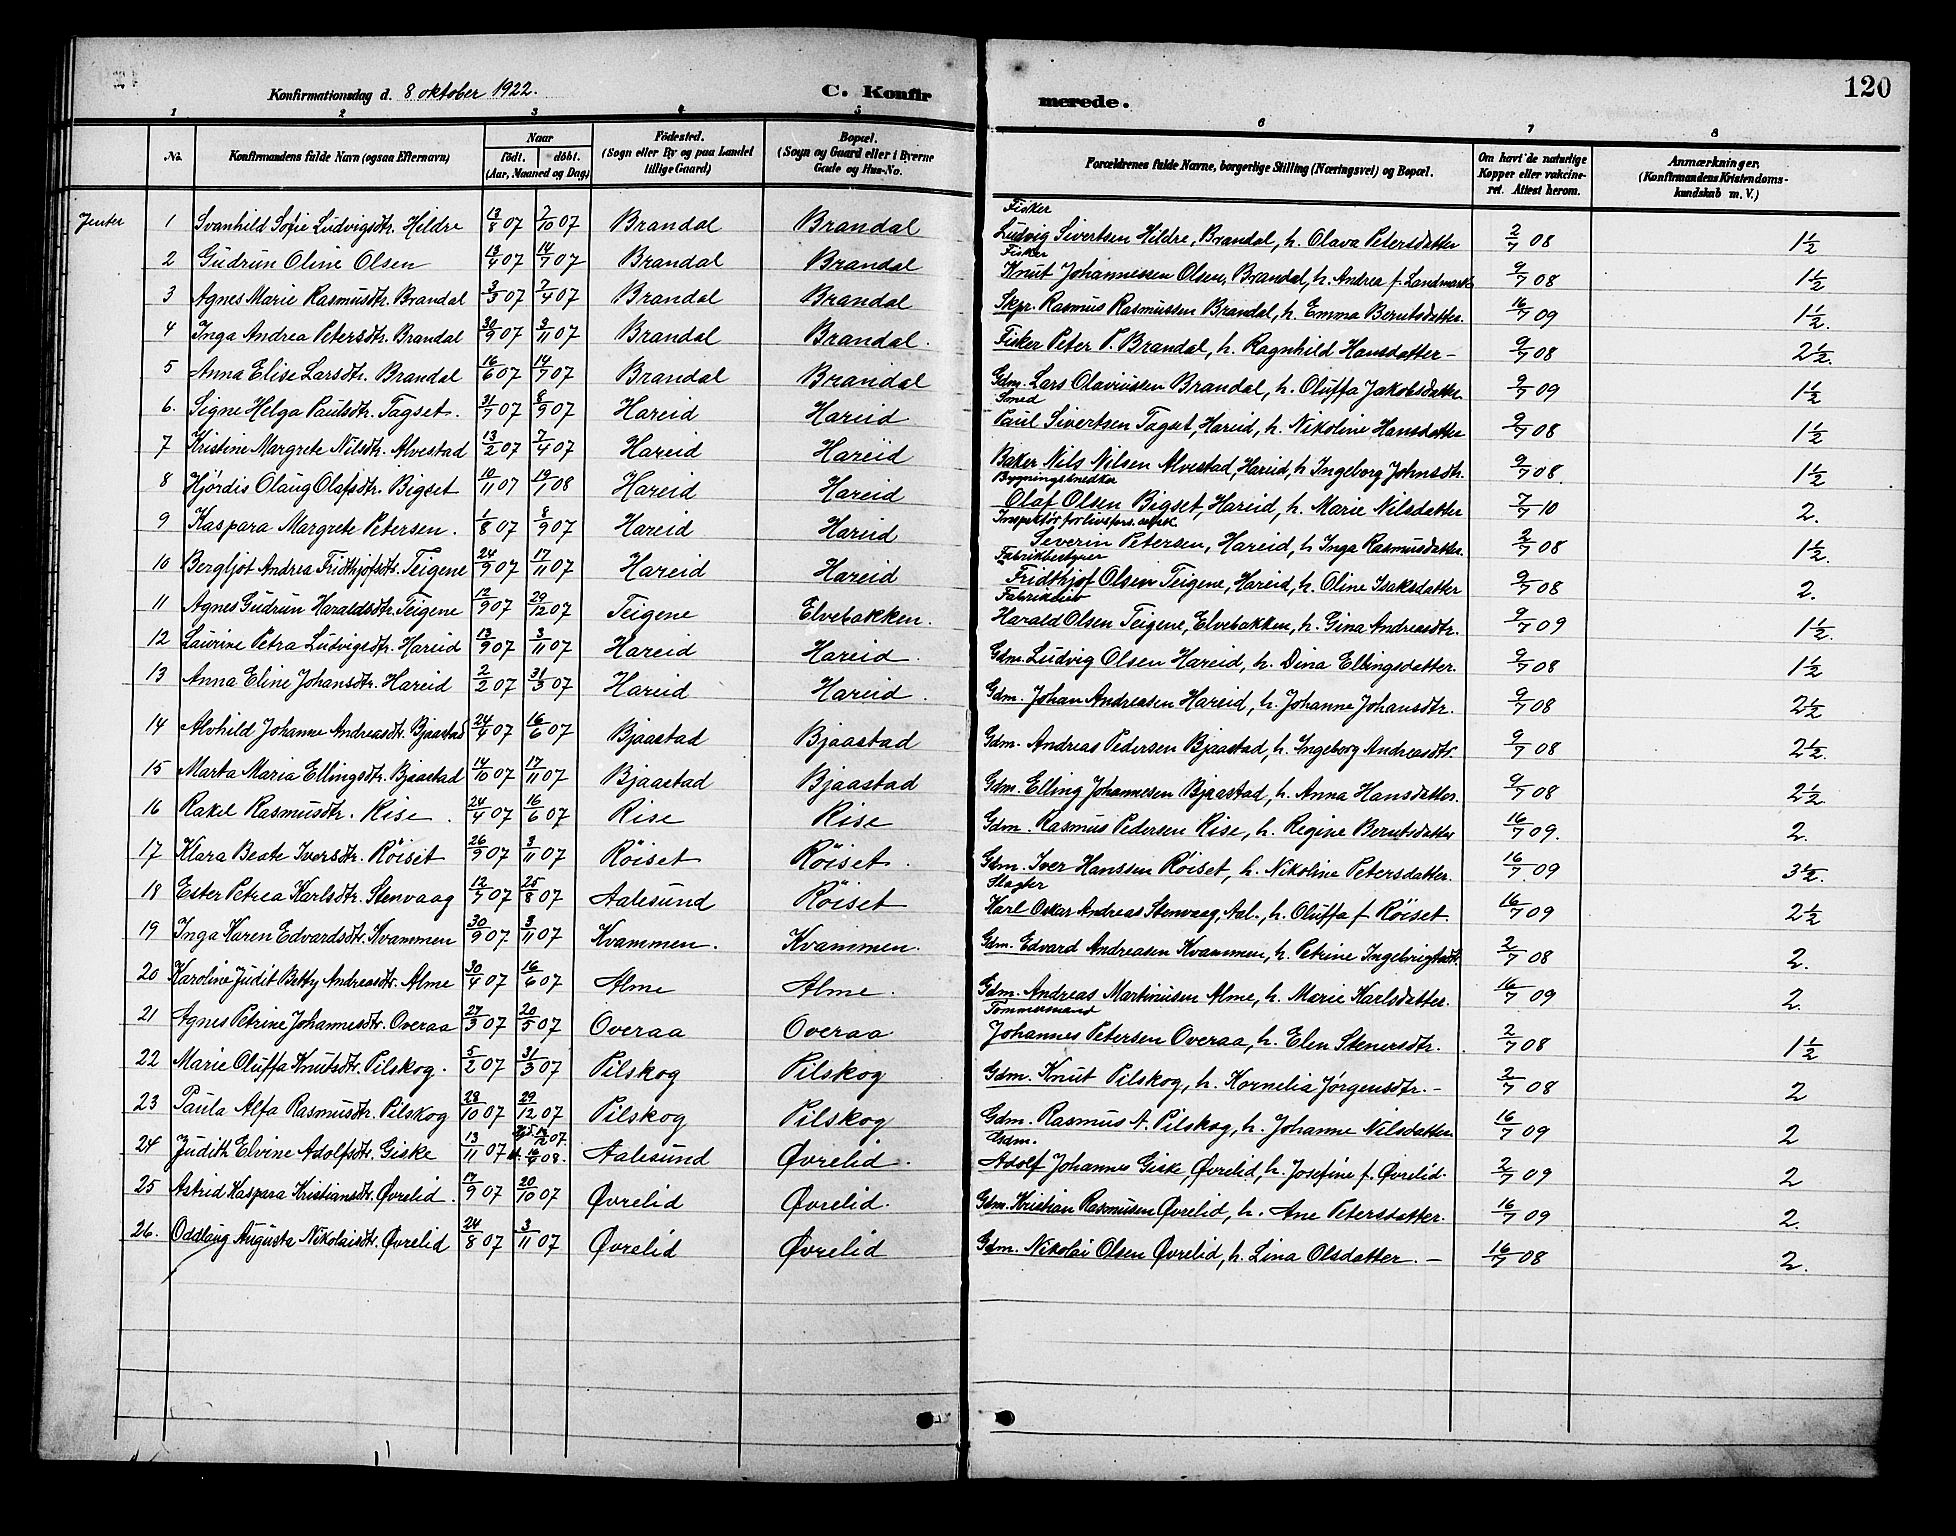 Konfirmationsdag d. 8 oktober 1922. C. Konfirmerede. 120
1 2 3 4 5 6 7 8
No. Konfirmandens fulde Navn (ogsaa Efternavn) Naar født. døbt. (Aar, Maaned og Dag) Fødested. (Sogn eller By og paa Landet tillige Gaard) Bopæl. (Sogn og Gaard eller i Byerne Gade og Hus-No. Forældrenes fulde Navne, borgerlige Stilling (Næringsvei) og Bopæl. Om havt de naturlige Kopper eller vakcineret. Attest herom. Anmærkninger. (Konfirmandens Kristendomskundskab m. V.)
Jenter 1 Svanhild Sofie Ludvigsdtr. Hildre 13/8 07 7/10 07 Brandal Brandal Fisker Ludvig Sivertsen Hildre, Brandal, h. Olava Petersdatter 2/7 08 1½
2 Gudrun Oline Olsen 13/4 07 14/7 07 Brandal Brandal Fisker Knut Johannessen Olsen, Brandal, h. Andrea f. Landmark 9/7 08 1½
3 Agnes Marie Rasmusdtr. Brandal 3/3 07 7/4 07 Brandal Brandal Skpr. Rasmus Rasmussen Brandal, h. Emma Berntsdatter. 16/7 09 1½.
4 Inga Andrea Petersdtr. Brandal 30/9 07 3/11 07 Brandal Brandal. Fisker Peter P. Brandal, h. Ragnhild Hansdatter – 9/7 08 2½.
5 Anna Elise Larsdtr. Brandal 16/6 07 14/7 07 Brandal Brandal Gdm. Lars Olaviussen Brandal, h. Oluffa Jakobsdatter 9/7 09 1½
6. Signe Helga Paulsdtr. Tagset. 31/7 07 8/9 07 Hareid Hareid Smed Paul Sivertsen Tagset, Hareid, h. Nikoline Hansdatter 9/7 08 1½
7 Kristine Margrete Nilsdtr. Alvestad 13/2 07 7/4 07 Hareid Hareid Baker Nils Nilsen Alvestad, Hareid, h. Ingeborg Johnsdtr. 9/7 08. 1½
8 Hjórdis Olaug Olafsdtr. Bigset 10/11 07 19/1 08 Hareid Hareid Bygningssnedker Olaf Olsen Bigset, Hareid, h. Marie Nilsdatter 7/7 10 2.
9 Kaspara Margrete Petersen. 1/8 07 8/9 07 Hareid Hareid Inspektør for livsfors. Severin Petersen, Hareid, h. Inga Rasmusdatter. 2/7 08 1½.
10 Bergljot Andrea Fridthjofsdtr. Teigene 24/9 07 17/11 07 Hareid Hareid Fabrikbestyrer Fridthjof Olsen Teigene, Hareid, h. Oline Isaksdatter 9/7 08 2.
11 Agnes Gudrun Haraldsdtr. Teigene 12/9 07 29/12 07 Teigene Elvebakken. Fabrikeier Harald Olsen Teigene, Elvebakken, h. Gina Andreasdtr. 9/7 09 1½.
12 Laurine Petra Ludvigsdtr. Hareid 13/9 07 3/11 07 Hareid Hareid. Gdm. Ludvig Olsen Hareid, h. Dina Ellingsdatter. 9/7 08 1½
13 Anna Eline Johansdtr. Hareid 2/2 07 31/3 07 Hareid Hareid. Gdm. Johan Andreasen Hareid, h. Johanne Johansdtr. 9/7 08 2½
14 Alvhild Johanne Andreasdtr. Bjaastad 24/4 07 16/6 07 Bjaastad Bjaastad Gdm. Andreas Pedersen Bjaastad, h. Ingeborg Andreasdtr. 9/7 08 2½.
15 Marta Maria Ellingsdtr. Bjaastad 14/10 07 17/11 07 Bjaastad Bjaastad Gdm. Elling Johannesen Bjaastad, h. Anna Hansdatter. 9/7 08 2½.
16 Rakel Rasmusdtr. Rise. 24/4 07 16/6 07 Rise Rise Gdm. Rasmus Pedersen Rise, h. Regine Berntsdatter 16/7 09. 2.
17 Klara Beate Iversdtr. Röiset 26/9 07 3/11 07 Röiset Röiset. Gdm. Iver Hanssen Röiset, h. Nikoline Petersdatter. 16/7 09 3½.
18 Ester Petrea Karlsdtr. Stenvaag 12/7 07 25/8 07 Aalesund Röiset Slagter Karl Oskar Andreas Stenvaag, Aal., h. Oluffa f. Röiset. 16/7 09 2½
19 Inga Karen Edvardsdtr. Kvammen 30/9 07 3/11 07 Kvammen. Kvammen. Gdm. Edvard Andreasen Kvammen, h. Petrine Ingebrigtsdt. 2/7 08 2.
20 Karoline Judit Betty Andreasdtr. Alme 30/4 07 16/6 07 Alme Alme. Gdm. Andreas Martinusen Alme, h. Marie Karlsdatter. 16/7 09 2.
21 Agnes Petrine Johannesdtr. Overaa 27/3 07 20/5 07 Overaa Overaa Tømmermand Johannes Petersen Overaa, h. Elen Stenersdtr. 2/7 08 1½
22 Marie Oluffa Knutsdtr. Pilskog. 5/2 07 31/3 07 Pilskog Pilskog Gdm. Knut Pilskog, h. Kornelia Jørgensdtr. – 2/7 08 2
23 Paula Alfa Rasmusdtr. Pilskog 28/10 07 29/12 07 Pilskog Pilskog Gdm. Rasmus A. Pilskog, h. Johanne Nilsdatter. 16/7 09 2
24 Judith Elvine Adolfsdtr. Giske 13/11 07 Aalesund Øvrelid. Gdm. Adolf Johannes Giske, Øvrelid, h. Josefine f. Øvrelid. 2/7 09 2
25 Astrid Kaspara Kristiansdtr. Øvrelid. 17/9 07 20/10 07 Øvrelid Øvrelid. Gdm. Kristian Rasmusen Øvrelid, h. Ane Petersdatter. 16/7 09 2.
26. Oddlaug Augusta Nikolaisdtr. Øvrelid 24/8 07 3/11 07 Øvrelid Øvrelid Gdm. Nikolai Olsen Øvrelid, h. Lina Olsdatter. – 16/7 08 2.